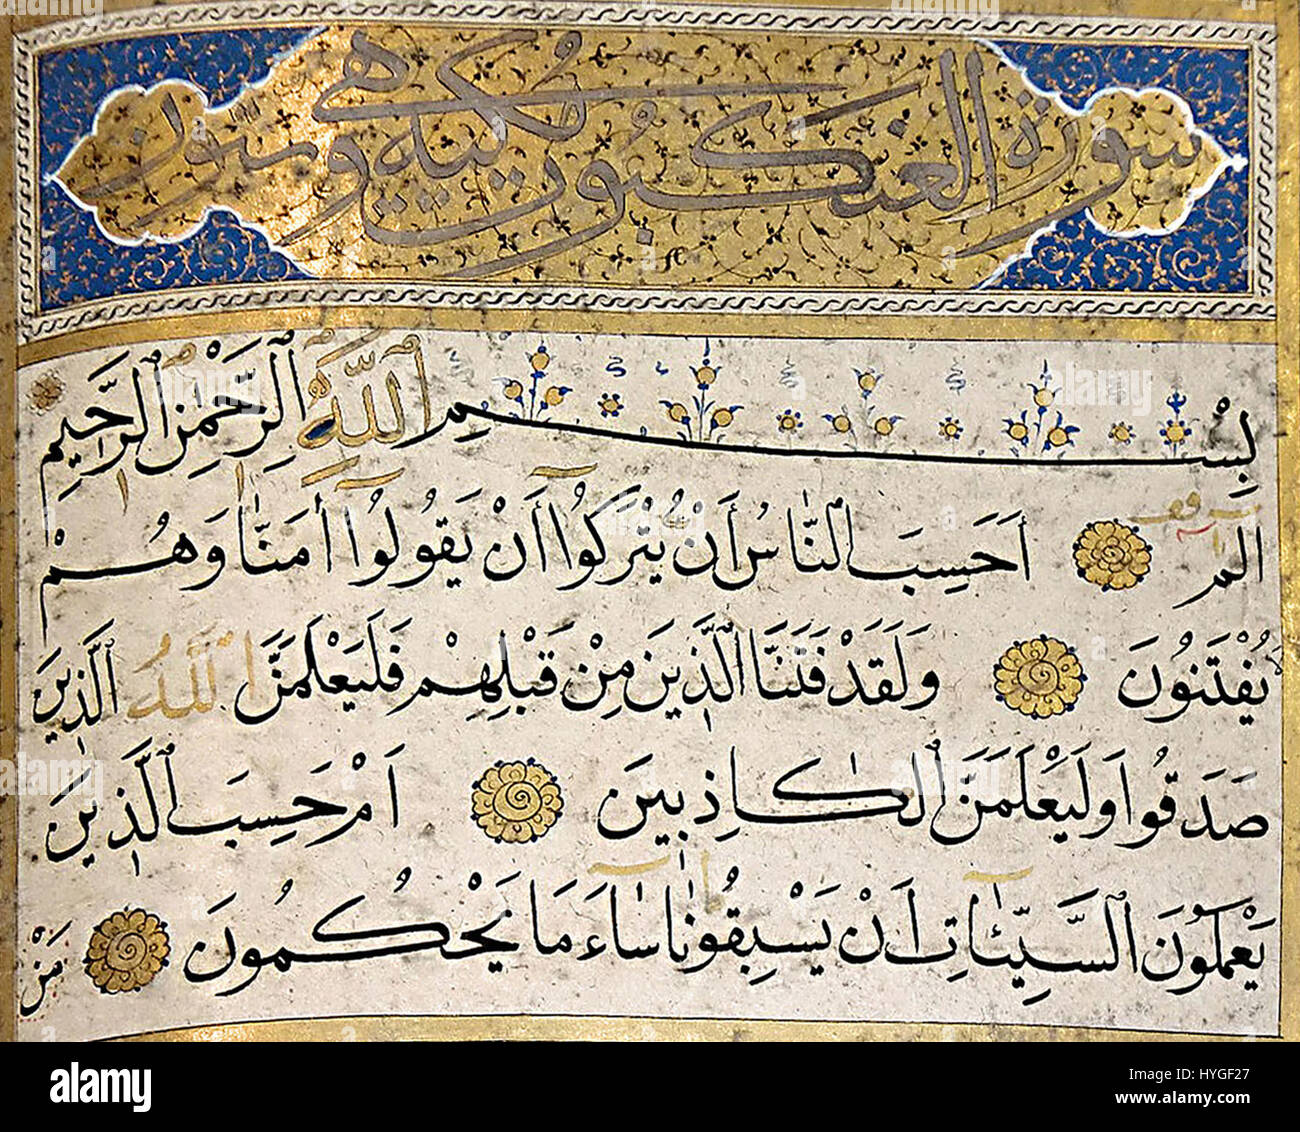 سورة العنكبوت مكية وهي ستون
بِسْمِ اللَّهِ الرَّحْمٰنِ الرَّحِيمِ
الٓمٓ أَحَسِبَ النَّاسُ أَنْ يُتْرَكُوٓا أَنْ يَقُولُوٓا اٰمَنَّا وَهُمْ
يُفْتَنُونَ وَلَقَدْ فَتَنَّا الَّذِينَ مِنْ قَبْلِهِمْ فَلَيَعْلَمَنَّ اللَّهُ الَّذِينَ
صَدَقُوا وَلَيَعْلَمَنَّ الْكَاذِبِينَ أَمْ حَسِبَ الَّذِينَ
يَعْمَلُونَ السَّيِّـَٔاتِ أَنْ يَسْبِقُونَا سَآءَ مَا يَحْكُمُونَ
مَنْ
alamy
a
alamy stock photo
HYGF27
www.alamy.com